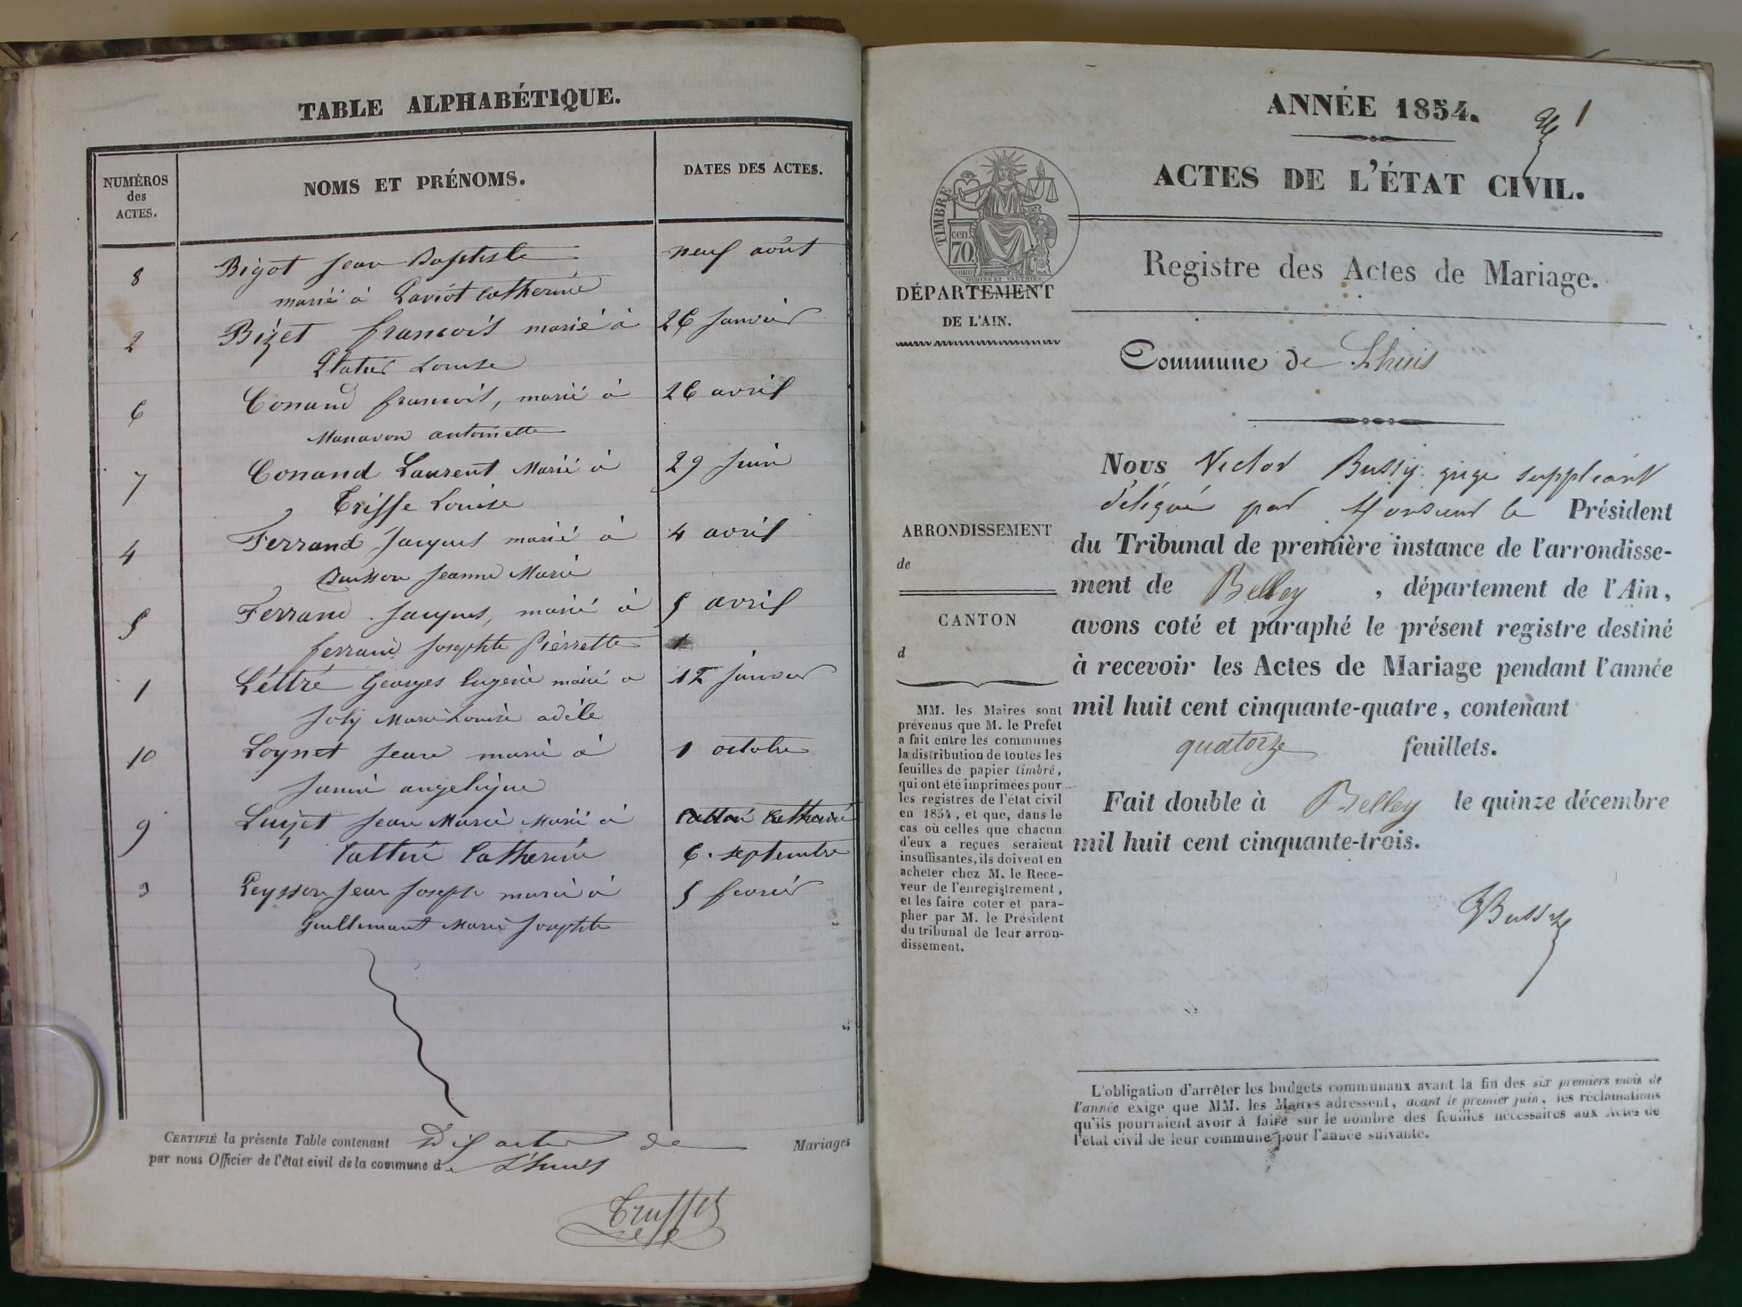 TABLE ALPHABÉTIQUE.
NUMÉROS
des
ACTES.
NOMS ET PRÉNOMS.
DATES DES ACTES.
8 Bigot Jean Baptiste neuf août
marié à Laviot Catherine
2 Bizet francois marié à 26 Janvier
Platier Louise
6 Conand francois, marié à 26 avril
Manavon antoinette
7 Conand Laurent Marié à 29 Juin
Trisse Louise
4 Ferrand Jacques marié à 4 avril
Buisson Jeanne Marie
5 Ferrand Jacques, marié à 5 avril
ferrand Josephte Pierrette
1 Léttré Georges Eugène marié a 12 Janvier
Joly Marie Louise adèle
10 Loynet Jean marié à 1 octobre
Janin angelique
9 Luizet Jean Marie Marié à
Cattin Catherine 6. septembre
3 Peysson Jean Joseph marié à 5 fevrier
Guillemant Marie Josephte
CERTIFIÉ la présente Table contenant Dix actes de Mariages
par nous Officier de l'état civil de la commune de Lhuis
Truffet
ANNÉE 1854.
1
ACTES DE L'ÉTAT CIVIL.
TIMBRE
70 cen
DÉPARTEMENT
DE L'AIN.
Registre des Actes de Mariage.
Commune de Lhuis
ARRONDISSEMENT
de
CANTON
d
MM. les Maires sont
prévenus que M. le Prefet
a fait entre les communes
la distribution de toutes les
feuilles de papier timbré,
qui ont été imprimées pour
les registres de l'état civil
en 1854, et que, dans le
cas où celles que chacun
d'eux a reçues seraient
insuffisantes, ils doivent en
acheter chez M. le Rece-
veur de l'enregistrement,
et les faire coter et para-
pher par M. le Président
du tribunal de leur arron-
dissement.
Nous Victor Bussy juge suppléant
délégué par Monsieur le Président
du Tribunal de première instance de l'arrondisse-
ment de Belley, département de l'Ain,
avons coté et paraphé le présent registre destiné
à recevoir les Actes de Mariage pendant l'année
mil huit cent cinquante-quatre, contenant
quatorze feuillets.
Fait double à Belley le quinze décembre
mil huit cent cinquante-trois.
VBussy
L'obligation d'arrêter les budgets communaux avant la fin des six premiers mois de
l'année exige que MM. les Maires adressent, avant le premier juin, les réclamations
qu'ils pourraient avoir à faire sur le nombre des feuilles nécessaires aux Actes de
l'état civil de leur commune pour l'année suivante.